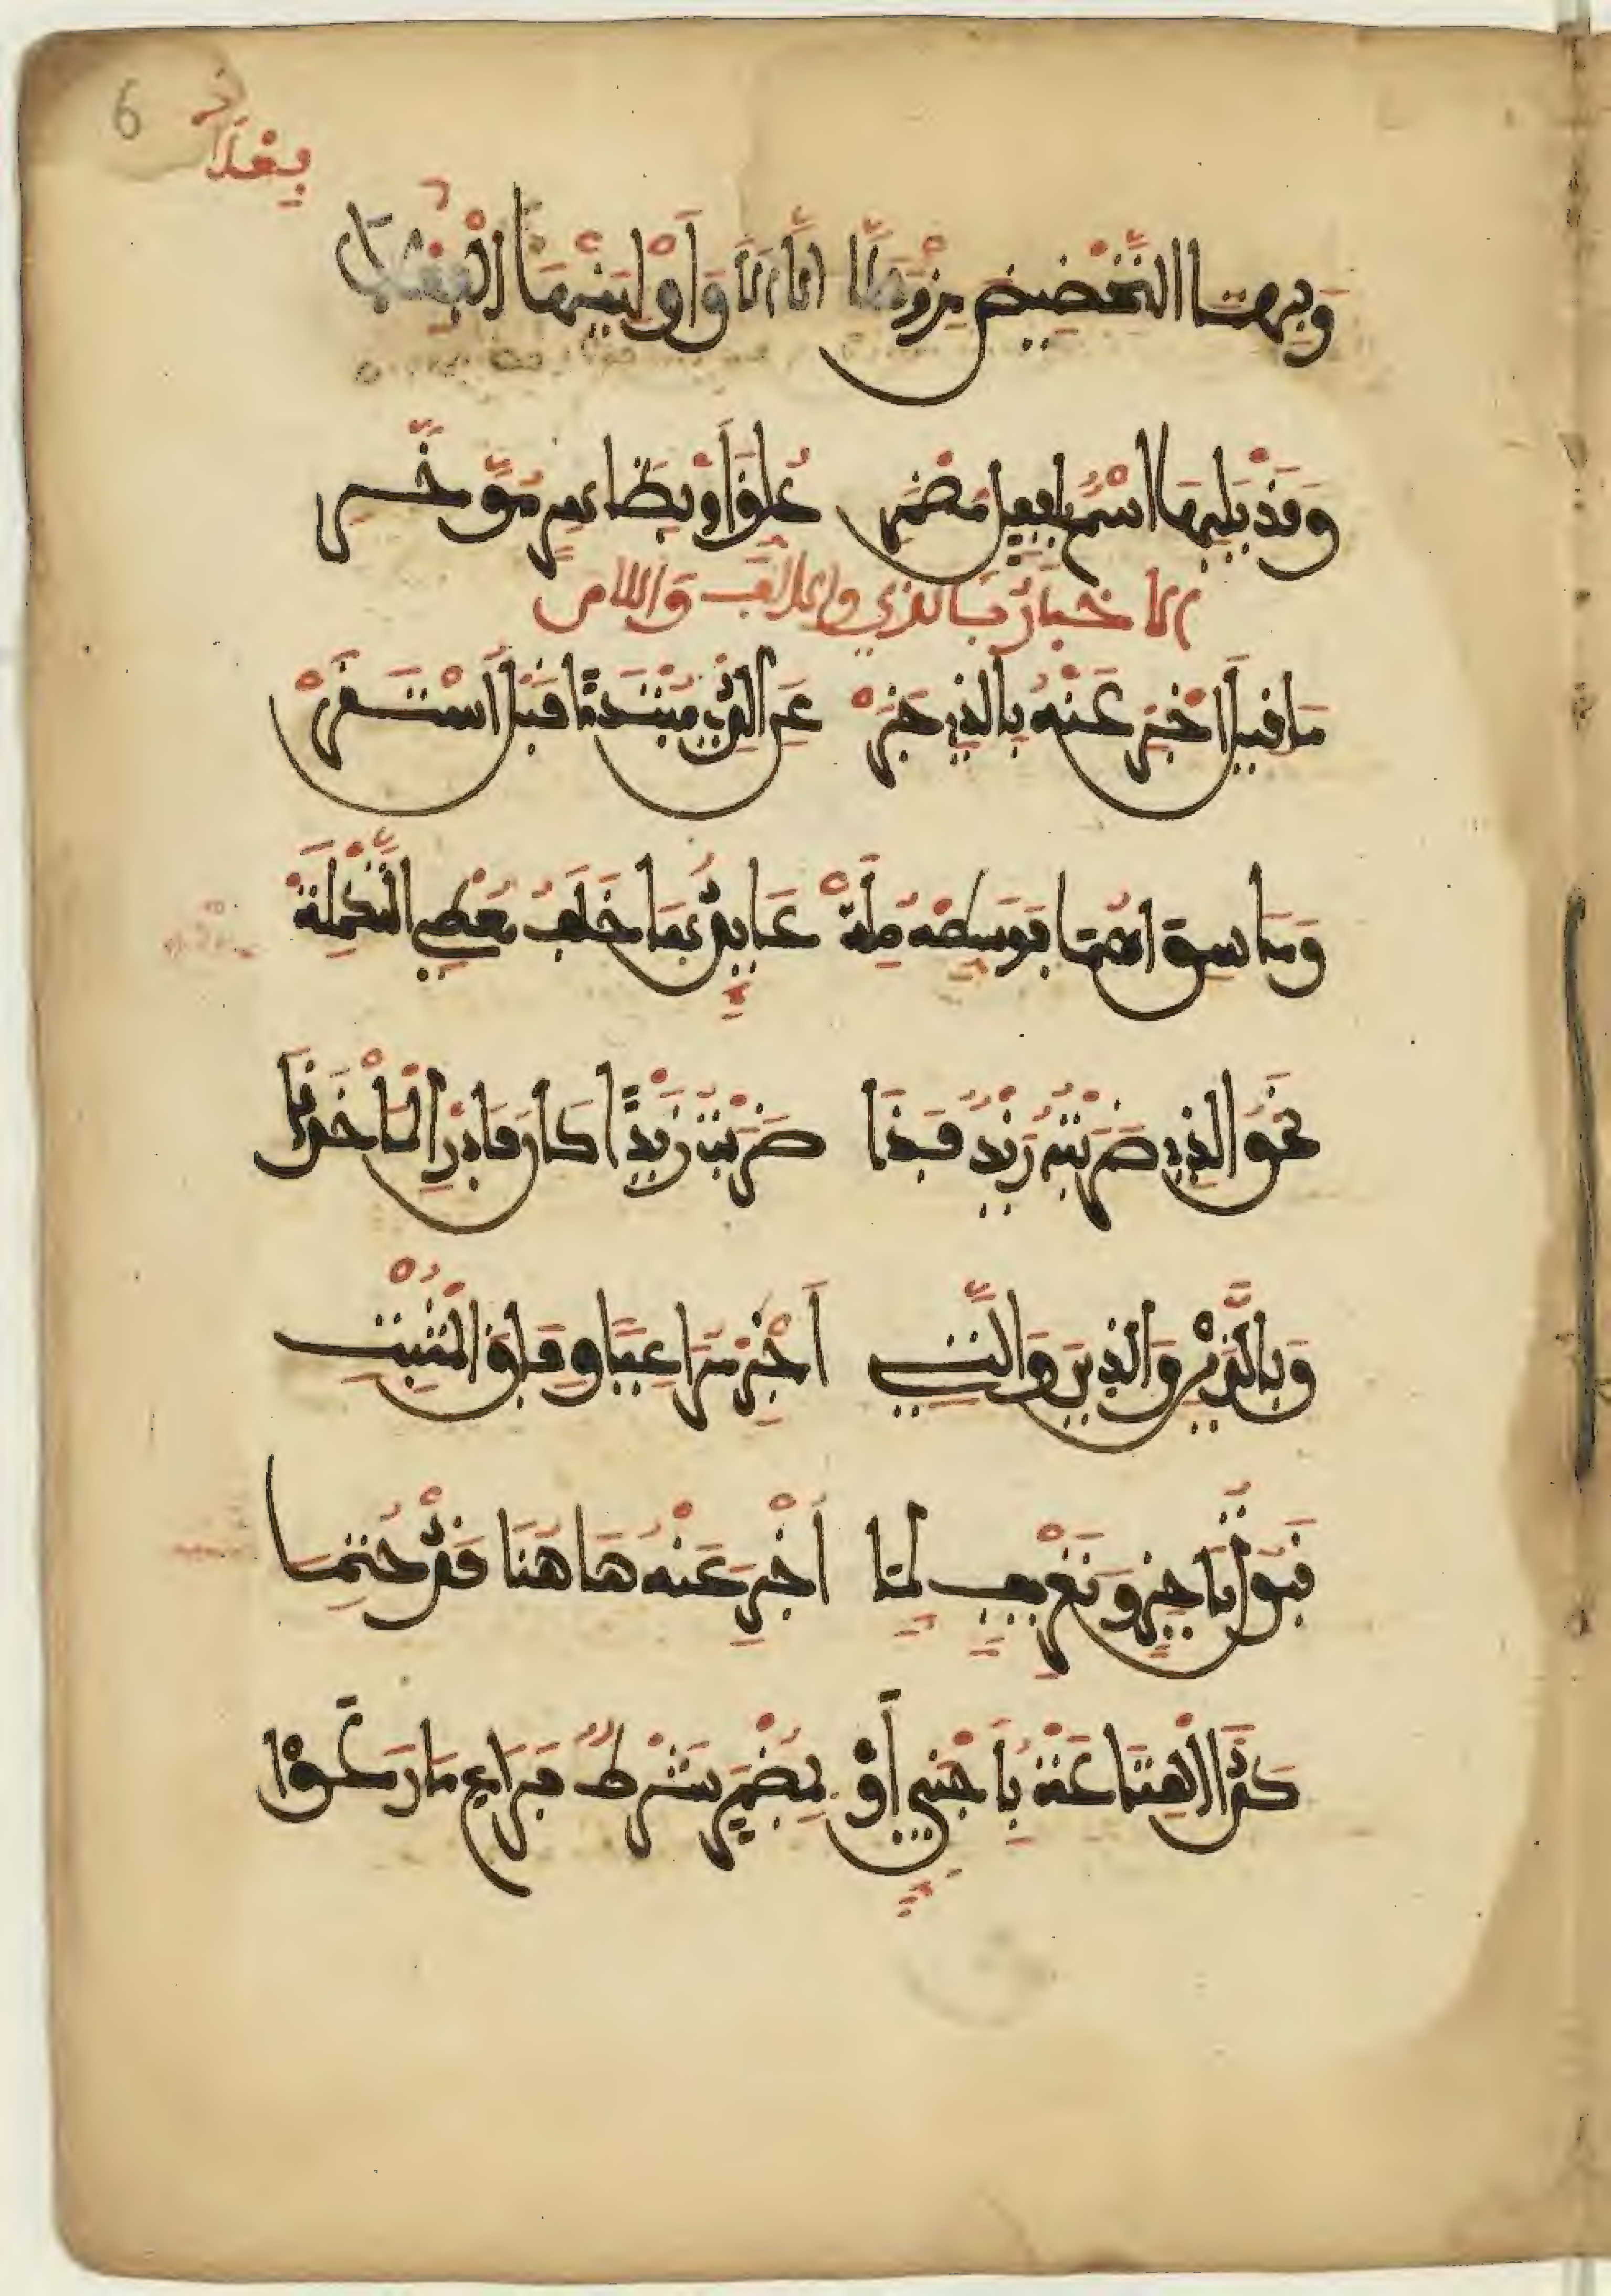 6
وَبِهِمَا التَّحْضِيضَ مِزْ وَهَلَّا أَلَّا أَلَا وَأَوْلِيَنْهَا الْفِعْلَا
وَقَدْ يَلِيهَا اسْمٌ بِفِعْلٍ مُضْمَرِ عُلِّقَ أَوْ بِظَاهِرٍ مُؤَخَّرِ
الاخبار بالذي والالف واللام
مَا قِيلَ أَخْبِرْ عَنْهُ بِالَّذِي خَبَرْ عَنِ الَّذِي مُبْتَدَأً قَبْلُ اسْتَقَرّْ
وَمَا سِوَاهُمَا فَوَسِّطْهُ صِلَهْ عَائِدُهَا خَلَفُ مُعْطِي التَّكْمِلَهْ
نَحْوُ الَّذِي ضَرَبْتُهُ زَيْدٌ فَذَا ضَرَبْتُ زَيْدًا كَانَ فَادْرِ الْمَأْخَذَا
وَبِاللَّذَيْنِ وَالَّذِينَ وَالَّتِي أَخْبِرْ مُرَاعِيًا وِفَاقَ الْمُثْبَتِ
قَبُولُ تَأْخِيرٍ وَتَعْرِيفٍ لِمَا أُخْبِرَ عَنْهُ هَا هُنَا قَدْ حُتِمَا
كَذَا الْغِنَا عَنْهُ بِأَجْنَبِيٍّ أَوْ بِمُضْمَرٍ شَرْطٌ فَرَاعِ مَا رَعَوْا